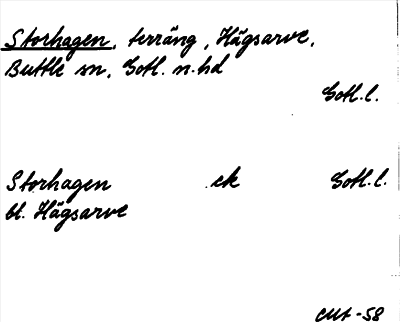 Storhagen, terräng, Hägsarve,
Buttle sn, Gotl. n. hd
Gotl. l.
Storhagen ek Gotl. l.
bl. Hägsarve
-58